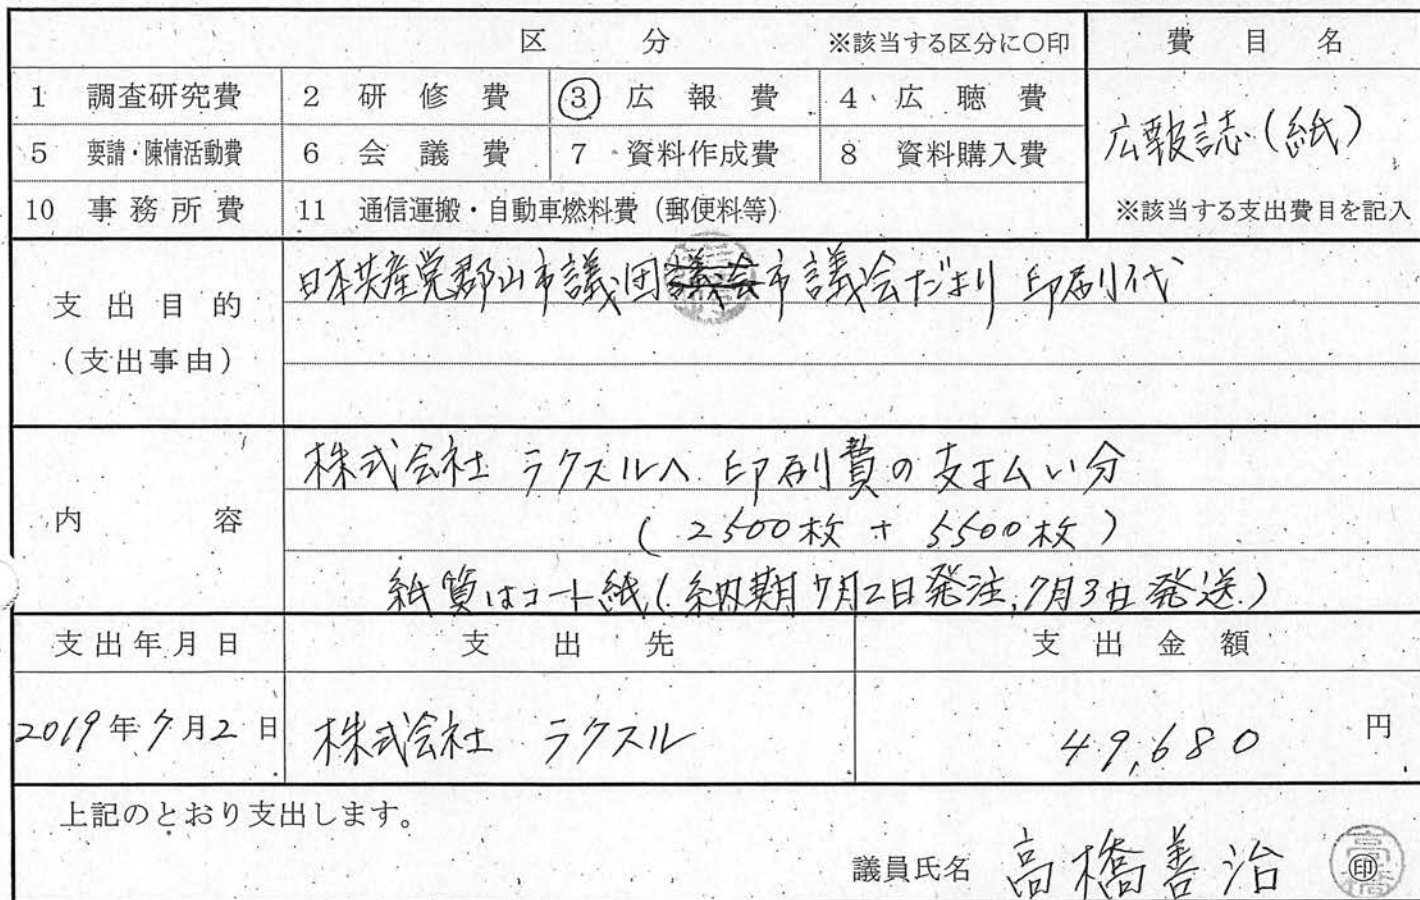 区 分 ※該当する区分に〇印 費目名
1 調査研究費 2 研修費 ③ 広報費 4 広聴費
広報誌(紙)
5 要請・陳情活動費 6 会議費 7 資料作成費 8 資料購入費
10 事務所費 11 通信運搬・自動車燃料費(郵便料等) ※該当する支出費目を記入
支出目的
(支出事由)
日本共産党郡山市議団議会市議会だより 印刷代
内容
株式会社 ラクスルへ 印刷費の支払い分
(2500枚 + 5500枚)
紙質はコート紙(納期7月2日発注,7月3日発送)
支出年月日 支出先 支出金額
2019年7月2日 株式会社 ラクスル 49,680円
上記のとおり支出します。
議員氏名 高橋善治 印
高橋